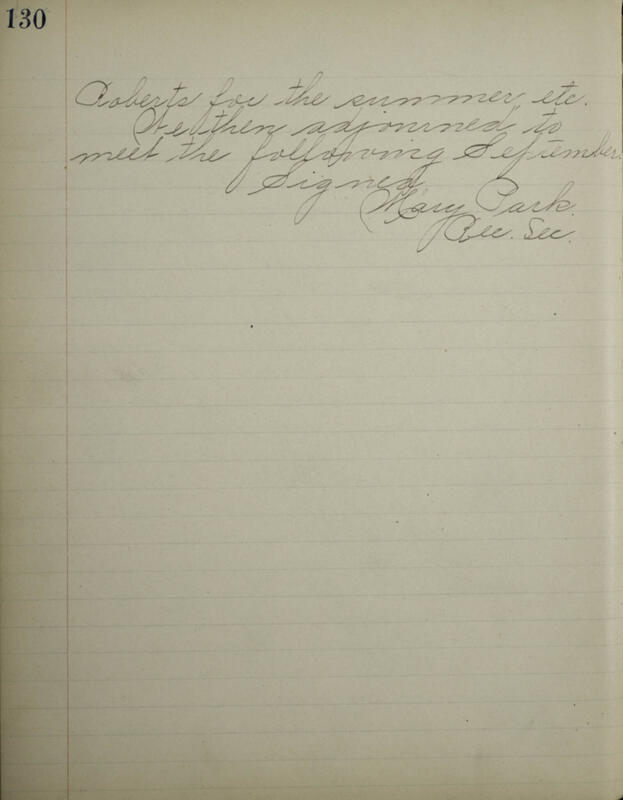 130
Roberts for the summer, etc.
We then adjourned to
meet the following September.
Signed
Mary Park.
Rec. Sec.